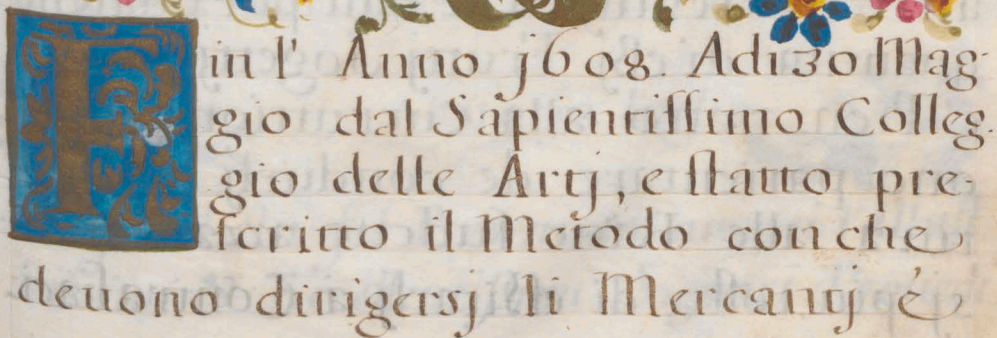 Fin l' Anno j608. Adi 30 Mag-
gio dal Sapientissimo Colleg-
gio delle Artj, e statto pre-
scritto il Metodo con che
deuono dirigersj li Mercantj é